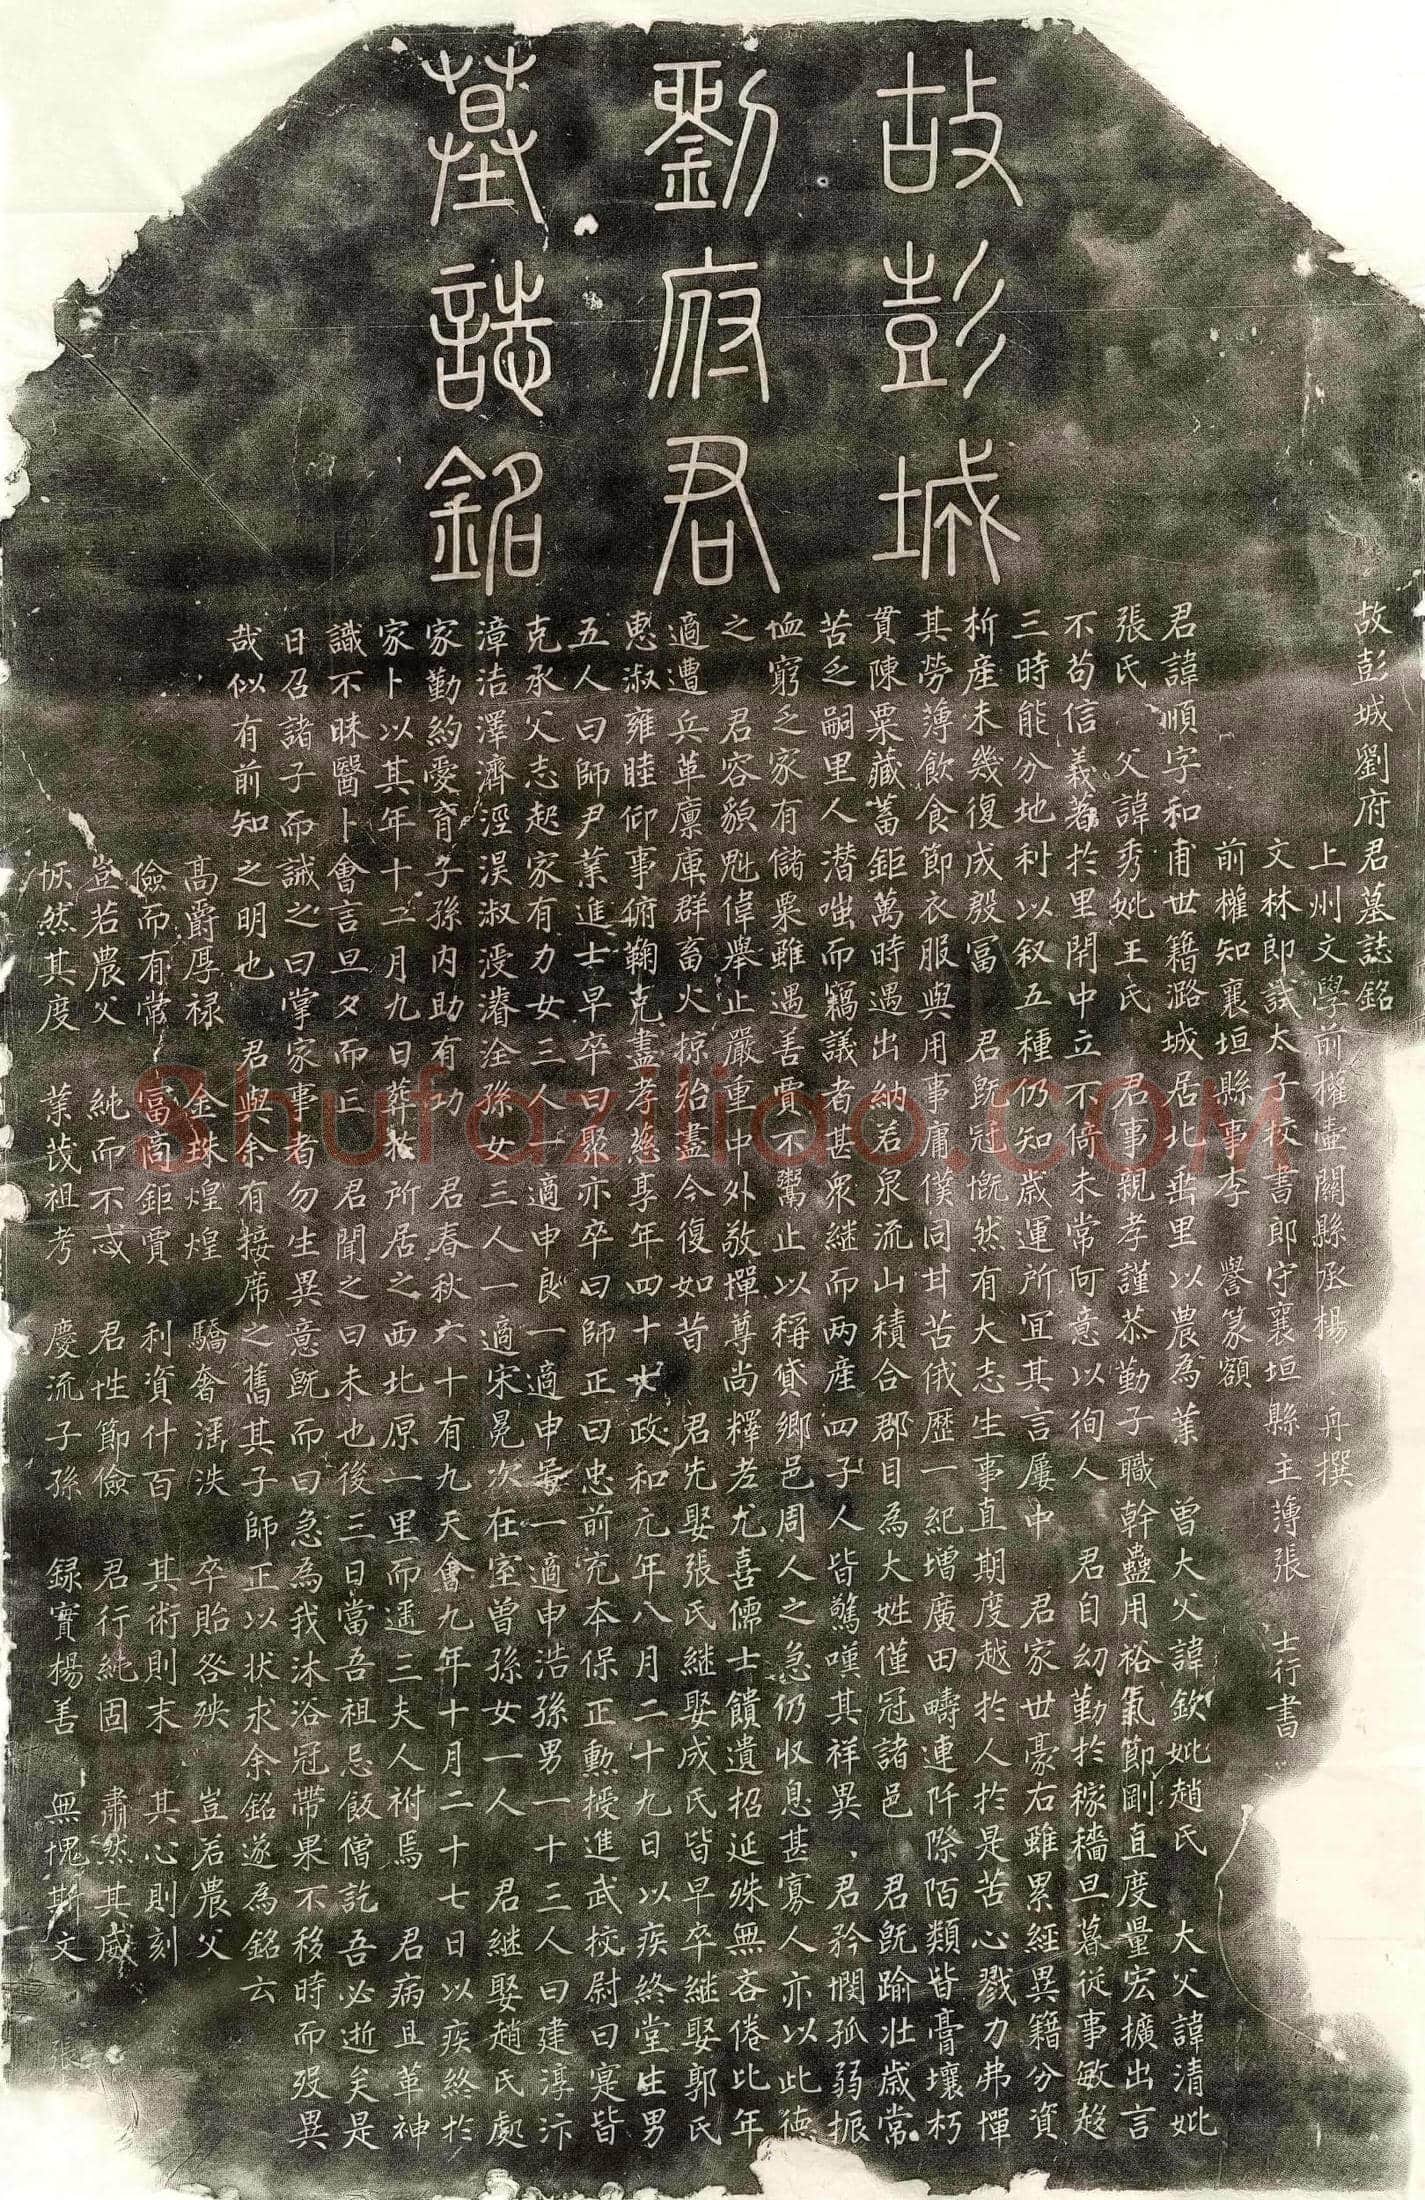 故彭城
劉府君
墓誌銘
故彭城劉府君墓誌銘
上州文學前權壺關縣丞楊 丹撰
文林郎試太子校書郎守襄垣縣主薄張 士行書
前權知襄垣縣事李 譽篆額
君諱順字和甫世籍潞城居北垂里以農為業 曾大父諱欽妣趙氏 大父諱清妣
張氏 父諱秀妣王氏 君事親孝謹恭勤子職幹蠱用裕氣節剛直度量宏擴出言
不苟信義著於里閈中立不倚未常阿意以徇人 君自幼勤於稼穡旦暮從事敏趍
三時能分地利以叙五種仍知歲運所宜其言屢中 君家世豪右雖累經異籍分資
析產未幾復成殷冨 君旣冠慨然有大志生事直期度越於人於是苦心戮力弗憚
其勞薄飲食節衣服與用事庸僕同甘苦俄歷一紀增廣田疇連阡際陌類皆膏壤朽
貫陳粟藏蓄鉅萬時遇出納若泉流山積合郡目為大姓僅冠諸邑 君旣踰壯歲常
苦乏嗣里人潜嗤而竊議者甚衆継而两產四子人皆驚嘆其祥異 君矜憫孤弱振
恤窮乏家有儲粟雖遇善賈不鬻止以稱貸鄉邑周人之急仍収息甚寡人亦以此德
之 君容貌魁偉舉止嚴重中外敬憚尊尚釋老尤喜儒士饋遺招延殊無吝倦比年
適遭兵革廪庫群畜火掠殆盡今復如昔 君先娶張氏継娶成氏皆早卒継娶郭氏
惠淑雍睦仰事俯鞠克盡孝慈享年四十七政和元年八月二十九日以疾終堂生男
五人曰師尹業進士早卒曰聚亦卒曰師正曰忠前充本保正勲授進武校尉曰寔皆
克承父志起家有力女三人一適申良一適申𡵱一適申浩孫男一十三人曰建淳汴
漳洁澤濟涇淏淑㴻濬洤孫女三人一適宋晃次在室曾孫女一人 君継娶趙氏處
家勤約愛育子孫内助有功 君春秋六十有九天會九年十月二十七日以疾終於
家卜以其年十二月九日葬於所居之西北原一里而遥三夫人祔焉 君病且革神
識不昧醫卜會言旦夕而正 君聞之曰未也後三日當吾祖忌飯僧訖吾必逝矣是
日召諸子而誡之曰掌家事者勿生異意旣而曰急為我沐浴冠帶果不移時而歿異
哉似有前知之明也 君與余有接席之舊其子師正以状求余銘遂為銘云
高爵厚禄 金珠煌煌 驕奢湎泆 卒貽各殃 豈若農父
儉而有常 富商鉅賈 利資什百 其術則末 其心則刻
豈若農父 純而不忒 君性節儉 君行純固 肅然其威
恢然其度 業茂祖考 慶流子孫 録實楊善 無愧斯文
張
Shufaziliao.com